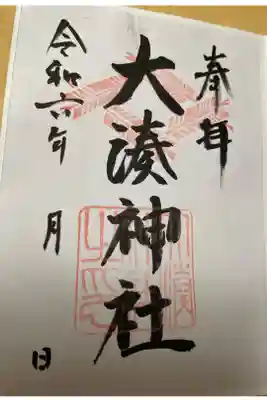 奉拝
大湊神社
令和六年 月 日